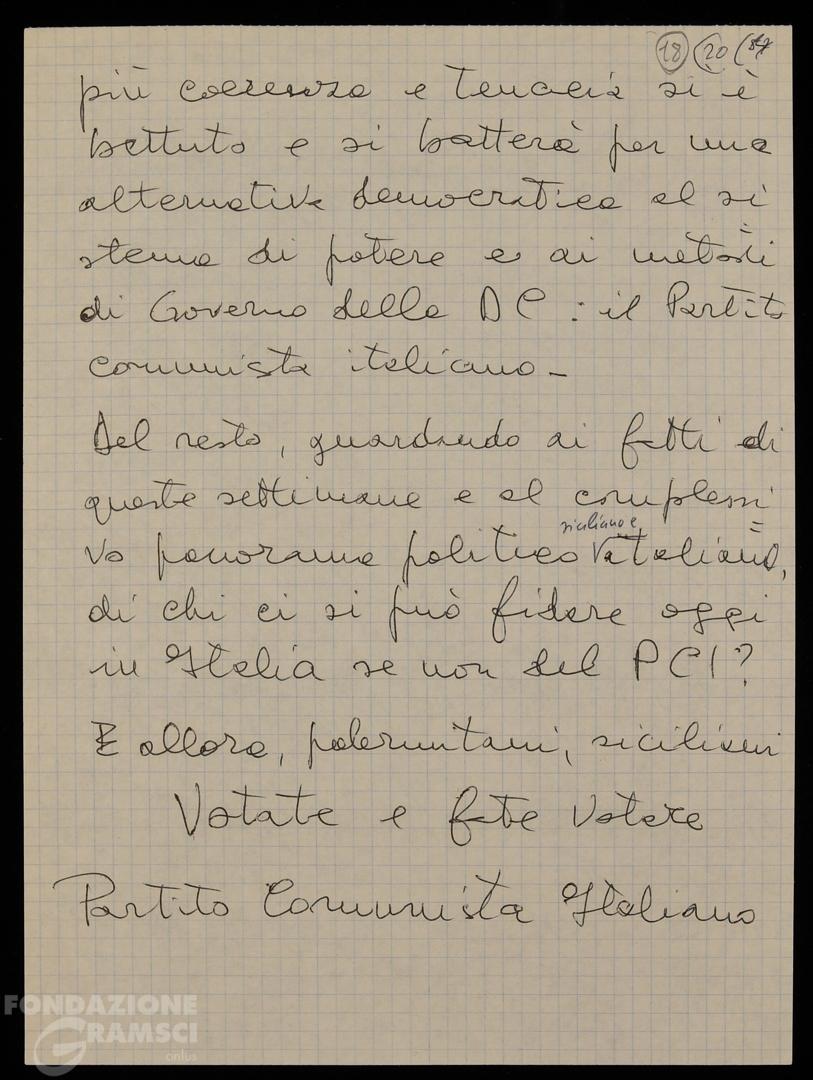 18 20
più coerenza e tenacia si è
battuto e si batterà per una
alternativa democratica al si
stema di potere e ai metodi
di Governo della DC : il Partito
comunista italiano -
Del resto, guardando ai fatti di
queste settimane e al complessi
siciliano e
vo panorama politico italiano,
di chi ci si può fidare oggi
in Italia se non del PCI?
E allora, palermitani, siciliani
Votate e fate votare
Partito Comunista Italiano
FONDAZIONE
GRAMSCI
onlus